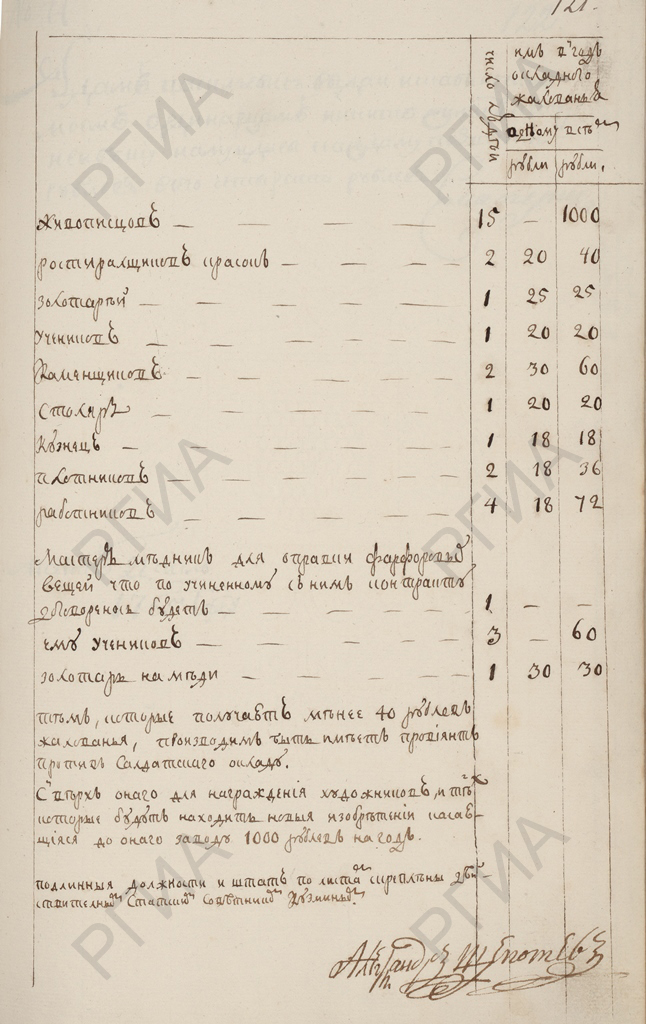 121.
число людей
имъ въ годъ
окладного
жалованья
одному всѣмъ
рубли рубли.
живописцовъ — 15 — 1000
ростиралщиковъ красокъ — 2 20 40
золотарей — 1 25 25
учениковъ — 1 20 20
Каменщиковъ — 2 30 60
Столяръ — 1 20 20
Кузнецъ — 1 18 18
плотниковъ — 2 18 36
работниковъ — 4 18 72
Мастеръ мѣдникъ для оправки фарфоровыхъ
вещей что по учиненному с нимъ контракту
договоренось будетъ — 1 — —
ему учениковъ — 3 — 60
золотарь на мѣди — 1 30 30
тѣмъ, которые получаютъ мѣнее 40 рублевъ
жалованья, производимъ быть имѣетъ провіянтъ
противъ Салдатскаго окладу.
Съверхъ онаго для награжденія художниковъ, и тѣхъ
которые будутъ находить новыя изобрѣтеніи касаю-
щіяся до онаго заводу 1000 рублевъ на годъ.
подлинныя должности и штатъ по листамъ скреплены дѣй-
ствителнымъ Статскимъ Совѣтникомъ Кузминымъ.
Александръ Щепотевъ
РГИА
РГИА
РГИА
РГИА
РГИА
РГИА